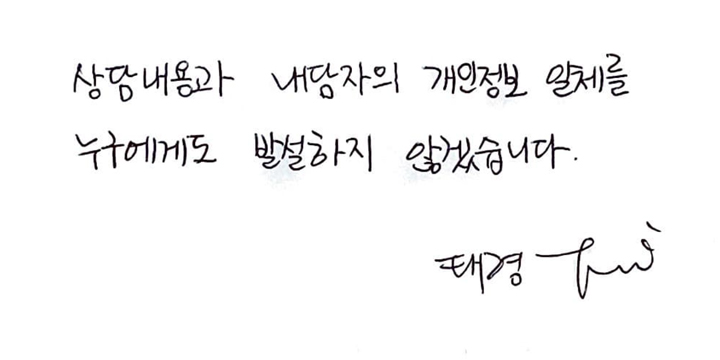 상담내용과 내담자의 개인정보 일체를
누구에게도 발설하지 않겠습니다.
태경